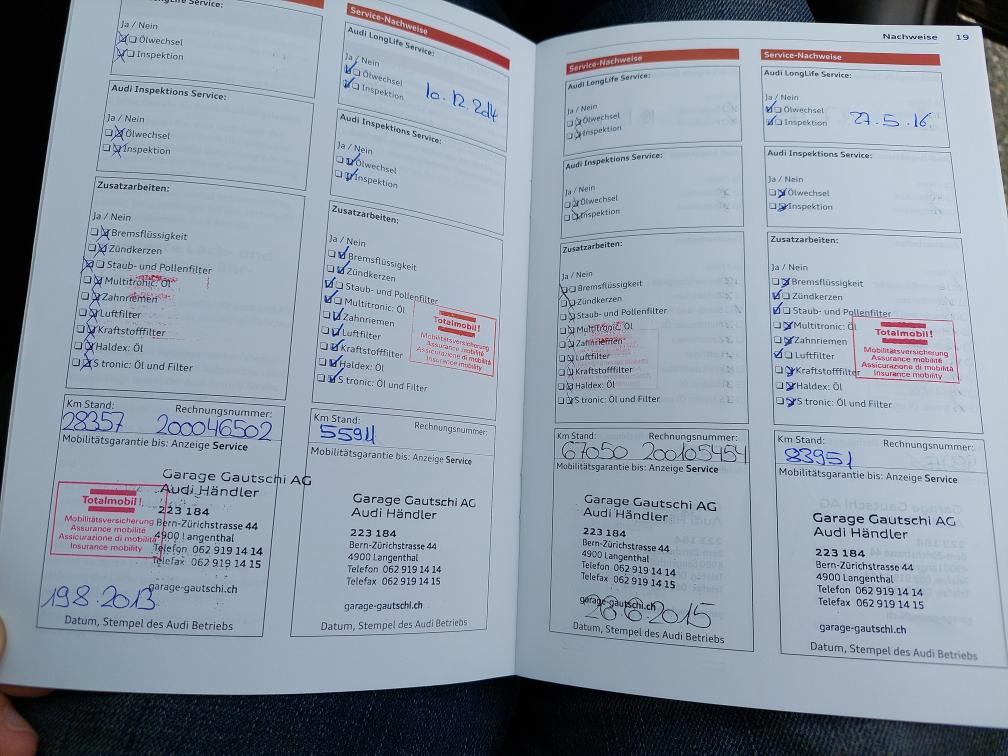 LongLife Service:
Ja / Nein
Ölwechsel
Inspektion
Audi Inspektions Service:
Ja / Nein
Ölwechsel
Inspektion
Zusatzarbeiten:
Ja / Nein
Bremsflüssigkeit
Zündkerzen
Staub- und Pollenfilter
Multitronic: Öl
Zahnriemen
Luftfilter
Kraftstofffilter
Haldex: Öl
S tronic: Öl und Filter
Km Stand: Rechnungsnummer:
28357 200046502
Mobilitätsgarantie bis: Anzeige Service
Garage Gautschi AG
Audi Händler
223 184
Bern-Zürichstrasse 44
4900 Langenthal
Telefon 062 919 14 14
Telefax 062 919 14 15
garage-gautschi.ch
Totalmobil!
Mobilitätsversicherung
Assurance mobilité
Assicurazione di mobilità
Insurance mobility
19.8.2013
Datum, Stempel des Audi Betriebs
Service-Nachweise
Audi LongLife Service:
Ja / Nein
Ölwechsel
Inspektion
10.12.2014
Audi Inspektions Service:
Ja / Nein
Ölwechsel
Inspektion
Zusatzarbeiten:
Ja / Nein
Bremsflüssigkeit
Zündkerzen
Staub- und Pollenfilter
Multitronic: Öl
Zahnriemen
Luftfilter
Kraftstofffilter
Haldex: Öl
S tronic: Öl und Filter
Totalmobil!
Mobilitätsversicherung
Assurance mobilité
Assicurazione di mobilità
Insurance mobility
Km Stand: Rechnungsnummer:
55911
Mobilitätsgarantie bis: Anzeige Service
Garage Gautschi AG
Audi Händler
223 184
Bern-Zürichstrasse 44
4900 Langenthal
Telefon 062 919 14 14
Telefax 062 919 14 15
garage-gautschi.ch
Datum, Stempel des Audi Betriebs
Nachweise 19
Service-Nachweise
Audi LongLife Service:
Ja / Nein
Ölwechsel
Inspektion
Audi Inspektions Service:
Ja / Nein
Ölwechsel
Inspektion
Zusatzarbeiten:
Ja / Nein
Bremsflüssigkeit
Zündkerzen
Staub- und Pollenfilter
Multitronic: Öl
Zahnriemen
Luftfilter
Kraftstofffilter
Haldex: Öl
S tronic: Öl und Filter
Km Stand: Rechnungsnummer:
67050 200105454
Mobilitätsgarantie bis: Anzeige Service
Garage Gautschi AG
Audi Händler
223 184
Bern-Zürichstrasse 44
4900 Langenthal
Telefon 062 919 14 14
Telefax 062 919 14 15
garage-gautschi.ch
26.6.2015
Datum, Stempel des Audi Betriebs
Service-Nachweise
Audi LongLife Service:
Ja / Nein
Ölwechsel
Inspektion
27.5.16
Audi Inspektions Service:
Ja / Nein
Ölwechsel
Inspektion
Zusatzarbeiten:
Ja / Nein
Bremsflüssigkeit
Zündkerzen
Staub- und Pollenfilter
Multitronic: Öl
Zahnriemen
Luftfilter
Kraftstofffilter
Haldex: Öl
S tronic: Öl und Filter
Totalmobil!
Mobilitätsversicherung
Assurance mobilité
Assicurazione di mobilità
Insurance mobility
Km Stand: Rechnungsnummer:
83951
Mobilitätsgarantie bis: Anzeige Service
Garage Gautschi AG
Audi Händler
223 184
Bern-Zürichstrasse 44
4900 Langenthal
Telefon 062 919 14 14
Telefax 062 919 14 15
garage-gautschi.ch
Datum, Stempel des Audi Betriebs